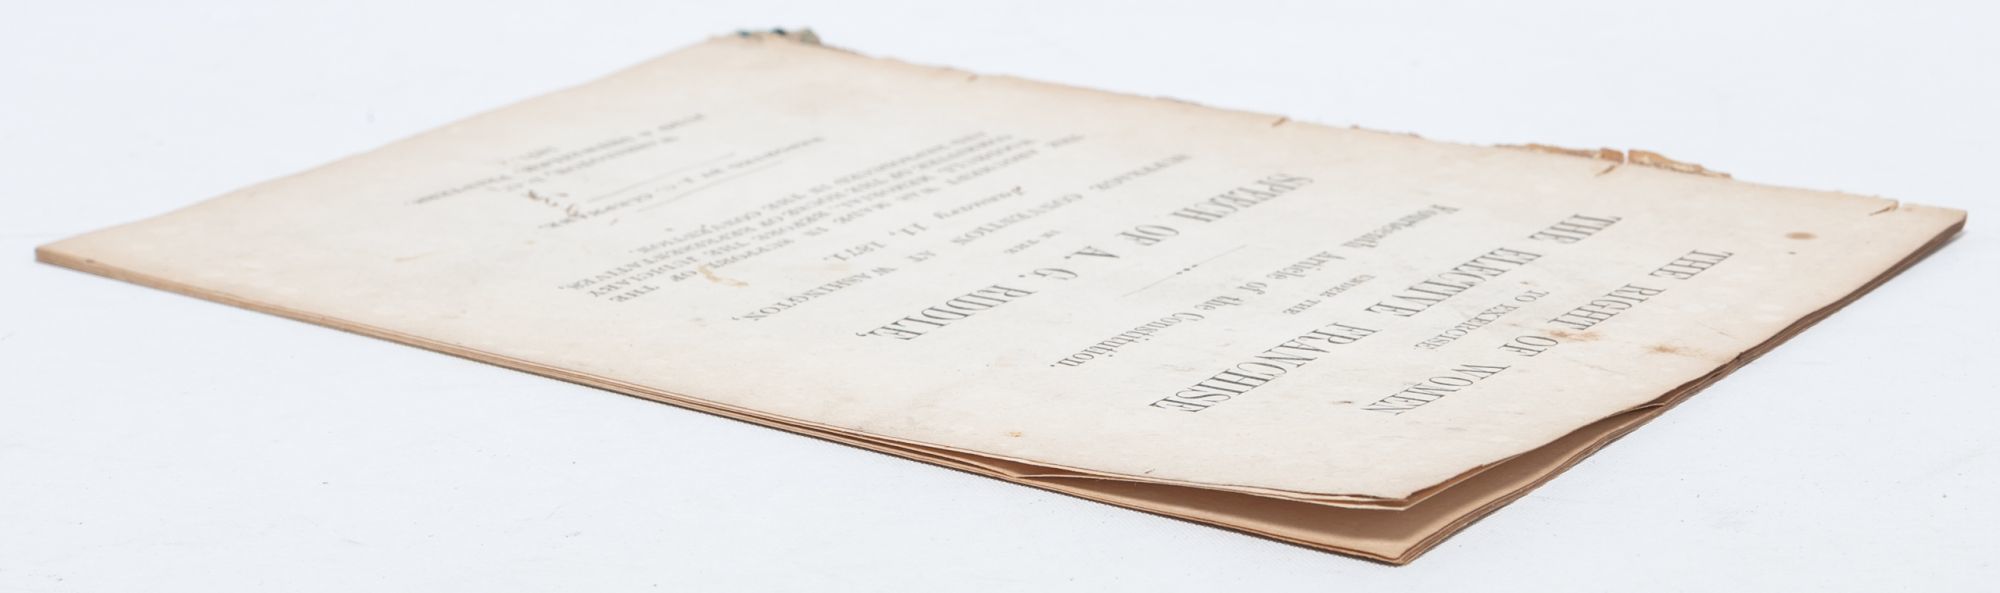 THE RIGHT OF WOMEN
TO EXERCISE
THE ELECTIVE FRANCHISE
UNDER THE
Fourteenth Article of the Constitution.
SPEECH OF A. G. RIDDLE,
IN THE
SUFFRAGE CONVENTION AT WASHINGTON,
January 11, 1871:
THE ARGUMENT WAS MADE IN SUPPORT OF THE
WOODHULL MEMORIAL, BEFORE THE JUDICIARY
COMMITTEE OF THE HOUSE OF REPRESENTATIVES,
AND REPRODUCED IN THE CONVENTION
REPORTED BY J. O. CLEPHANE.
WASHINGTON
JUDD & DETWEILER, PRINTERS.
1871.